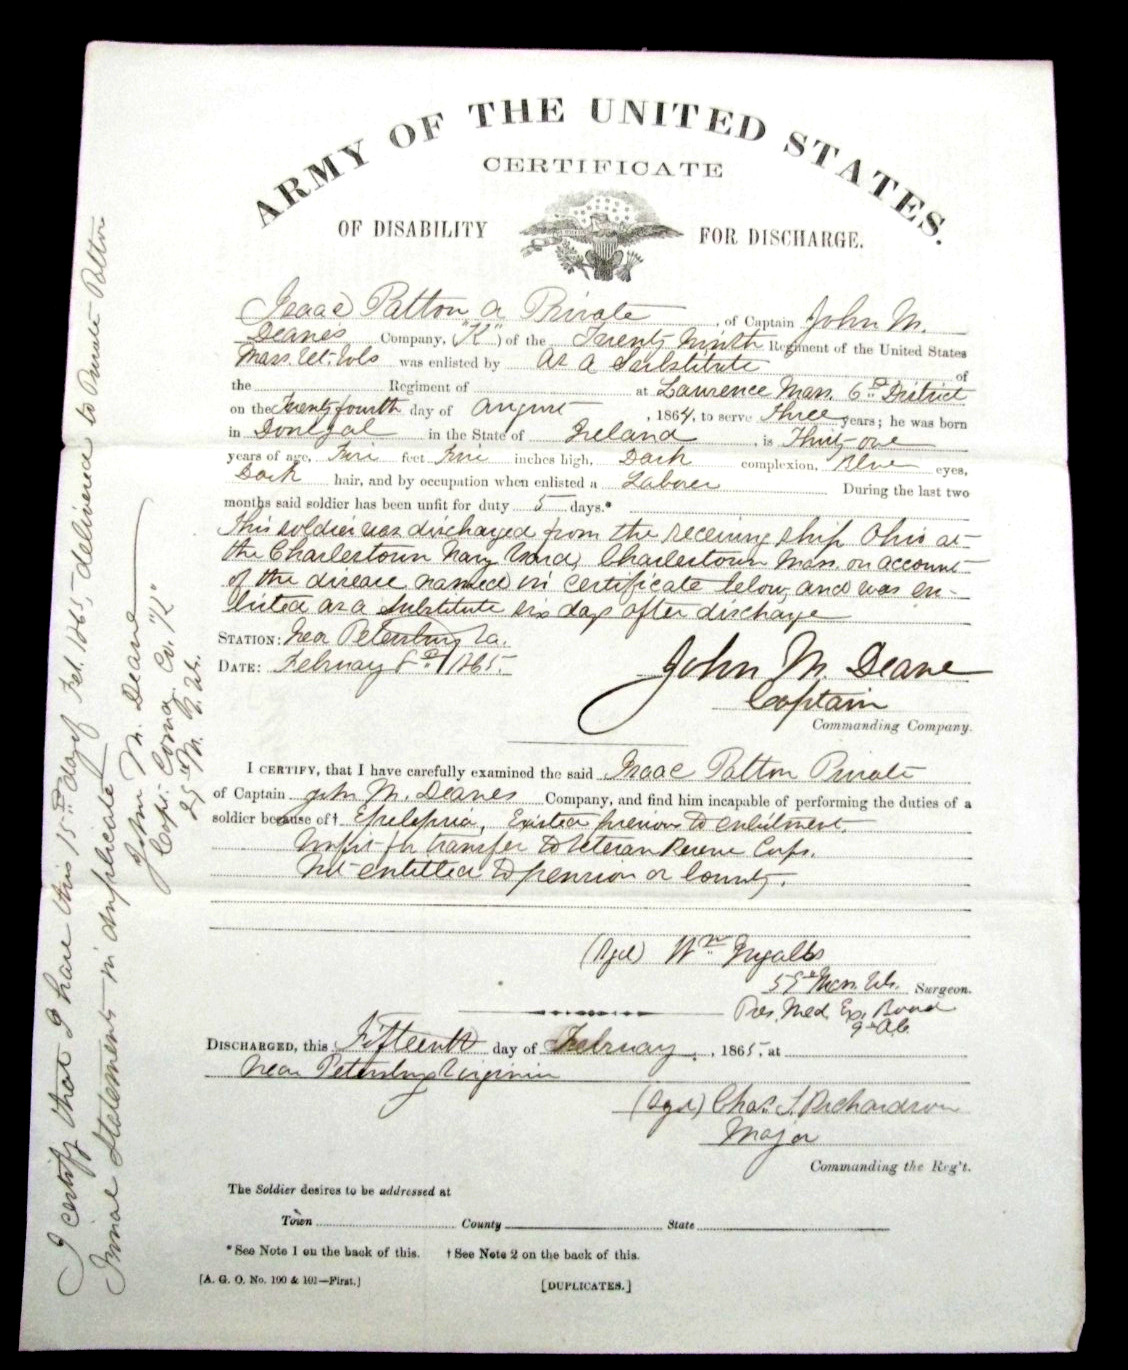 ARMY OF THE UNITED STATES.
CERTIFICATE
OF DISABILITY FOR DISCHARGE.
Isaac Patton a Private, of Captain John M.
Deanes Company, ("K") of the Twenty Ninth Regiment of the United States
Mass. Vet. Vols was enlisted by as a Substitute of
the Regiment of at Lawrence Mass. 6th District
on the Twenty fourth day of August, 1864, to serve Three years; he was born
in Donegal in the State of Ireland, is Thirty one
years of age, Five feet Five inches high, Dark complexion, Blue eyes,
Dark hair, and by occupation when enlisted a Laborer During the last two
months said soldier has been unfit for duty 5 days.*
This soldier was discharged from the receiving ship Ohio at
the Charlestown Navy Yard, Charlestown Mass. on account
of the disease named in certificate below, and was en-
listed as a substitute six days after discharge
STATION: Near Petersburg Va.
DATE: February 8th 1865.
John M. Deane
Captain
Commanding Company.
I CERTIFY, that I have carefully examined the said Isaac Patton Private
of Captain John M. Deanes Company, and find him incapable of performing the duties of a
soldier because of† Epilepsia, Existed previous to enlistment.
Unfit for transfer to Veteran Reserve Corps.
Not entitled to pension or bounty.
(Sgd) Wm Ingalls
59th Mass. Vols. Surgeon.
Pres. Med. Ex. Board
9th A.C.
DISCHARGED, this Fifteenth day of February, 1865, at
Near Petersburg Virginia
(Sgd) Chas. T. Richardson
Major
Commanding the Reg't.
The Soldier desires to be addressed at
Town County State
*See Note 1 on the back of this. †See Note 2 on the back of this.
[A. G. O. No. 100 & 101—First.] [DUPLICATES.]
I certify that I have this 15th day of Feb. 1865, delivered to Private Patton
Final Statements in duplicate
John M. Deane
Capt. Comg. Co. "K"
29th M. V. Vols.